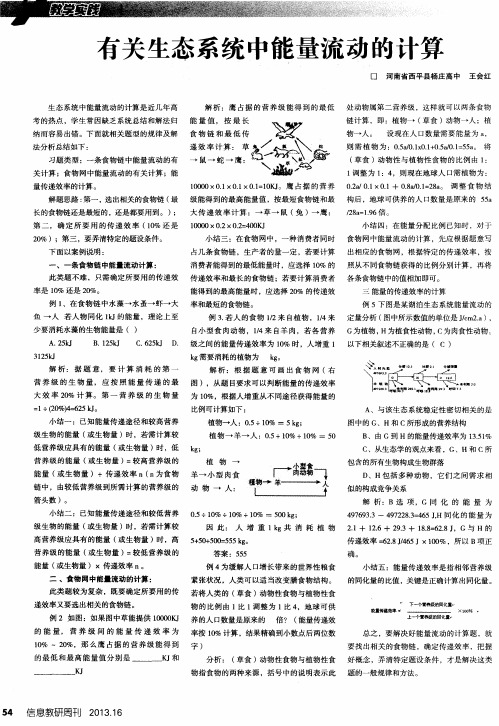 教学实践
有关生态系统中能量流动的计算
□ 河南省西平县杨庄高中 王会红
生态系统中能量流动的计算是近几年高
考的热点，学生常因缺乏系统总结和解法归
纳而容易出错。下面就相关题型的规律及解
法分析总结如下：
习题类型：一条食物链中能量流动的有
关计算；食物网中能量流动的有关计算；能
量传递效率的计算。
解题思路：第一，选出相关的食物链（最
长的食物链还是最短的，还是都要用到。）；
第二，确定所要用的传递效率（10% 还是
20%）；第三，要弄清特定的题设条件。
下面以案例说明：
一、一条食物链中能量流动计算：
此类题不难，只需确定所要用的传递效
率是 10% 还是 20%。
例 1、在食物链中水藻→水蚤→虾→大
鱼 →人 若人物同化 1kJ 的能量，理论上至
少要消耗水藻的生物能量是（ ）
A. 25kJ B. 125kJ C. 625kJ D.
3125kJ
解析：据题意，要计算消耗的第一
营养级的生物量，应按照能量传递的最
大效率 20% 计算。第一营养级的生物量
=1÷(20%)4=625 kJ。
小结一：已知能量传递途径和较高营养
级生物的能量（或生物量）时，若需计算较
低营养级应具有的能量（或生物量）时，低
营养级的能量（或生物量）=较高营养级的
能量（或生物量）÷ 传递效率 n（n 为食物
链中，由较低营养级到所需计算的营养级的
箭头数）。
小结二：已知能量传递途径和较低营养
级生物的能量（或生物量）时，若需计算较
高营养级应具有的能量（或生物量）时，高
营养级的能量（或生物量）=较低营养级的
能量（或生物量）× 传递效率 n 。
二、食物网中能量流动的计算：
此类题较为复杂，既要确定所要用的传
递效率又要选出相关的食物链。
例 2 如图：如果图中草能提供 10000KJ
的能量，营养级间的能量传递效率为
10% ~ 20%，那么鹰占据的营养级能得到
的最低和最高能量值分别是 ______KJ 和
______KJ
解析：鹰占据的营养级能得到的最低
能量值，按最长
食物链和最低传
递效率计算：草
→ 鼠 → 蛇 → 鹰：
10000×0.1×0.1×0.1=10KJ。鹰占据的营养
级能得到的最高能量值，按最短食物链和最
大传递效率计算：→草→鼠（兔）→鹰：
10000×0.2×0.2=400KJ
小结三：在食物网中，一种消费者同时
占几条食物链，生产者的量一定，若要计算
消费者能得到的最低能量时，应选择 10% 的
传递效率和最长的食物链；若要计算消费者
能得到的最高能量时，应选择 20% 的传递效
率和最短的食物链。
例 3. 若人的食物 1/2 来自植物，1/4 来
自小型食肉动物，1/4 来自羊肉，若各营养
级之间的能量传递效率为 10% 时，人增重 1
kg 需要消耗的植物为 kg。
解析：根据题意可画出食物网（右
图），从题目要求可以判断能量的传递效率
为 10%，根据人增重从不同途径获得能量的
比例可计算如下：
植物→人：0.5÷10% = 5 kg；
植物→羊→人：0.5÷10%÷10% = 50
kg；
植物→
羊→小型肉食
动物→人：
小型食肉动物
植物 羊 人
0.5÷10%÷10%÷10% = 500 kg；
因此：人增重 1kg 共消耗植物
5+50+500=555 kg。
答案：555
例 4 为缓解人口增长带来的世界性粮食
紧张状况，人类可以适当改变膳食结构。
若将人类的（草食）动物性食物与植物性食
物的比例由 1 比 1 调整为 1 比 4，地球可供
养的人口数量是原来的 倍？（能量传递效
率按 10% 计算，结果精确到小数点后两位数
字）
分析：（草食）动物性食物与植物性食
物指食物的两种来源，括号中的说明表示此
处动物属第二营养级，这样就可以两条食物
链计算，即：植物→（草食）动物→人；植
物→人。 设现在人口数量需要能量为 a，
则需植物为：0.5a/0.1x0.1+0.5a/0.1=55a。将
（草食）动物性与植物性食物的比例由 1：
1 调整为 1：4，则现在地球人口需植物为：
0.2a/ 0.1x 0.1 + 0.8a/0.1=28a。调整食物结
构后，地球可供养的人口数量是原来的 55a
/28a=1.96 倍。
小结四：在能量分配比例已知时，对于
食物网中能量流动的计算，先应根据题意写
出相应的食物网，根据特定的传递效率，按
照从不同食物链获得的比例分别计算，再将
各条食物链中的值相加即可。
三 能量传递效率的计算
例 5 下图是某湖泊生态系统能量流动的
定量分析（图中所示数值的单位是 J/cm2.a ），
G 为植物，H 为植食性动物，C 为肉食性动物。
以下相关叙述不正确的是（ C ）
A、与该生态系统稳定性密切相关的是
图中的 G、H 和 C 所形成的营养结构
B、由 G 到 H 的能量传递效率为 13.51%
C、从生态学的观点来看，G、H 和 C 所
包含的所有生物构成生物群落
D、H 包括多种动物，它们之间需求相
似的构成竞争关系
解析：B 选项，G 同化的能量为
497693.3 -497228.3=465 J,H 同化的能量为
2.1 + 12.6 + 29.3 + 18.8=62.8 J，G 与 H 的
传递效率 =62.8 J/465 J × 100%，所以 B 项正
确。
小结五：能量传递效率是指相邻营养级
的同化量的比值，关键是正确计算出同化量。
能量传递效率 = 下一个营养级的同化量 / 上一个营养级的同化量 ×100%
总之，要解决好能量流动的计算题，就
要找出相关的食物链，确定传递效率，把握
好概念，弄清特定题设条件，才是解决这类
题的一般规律和方法。
54 信息教研周刊 2013.16